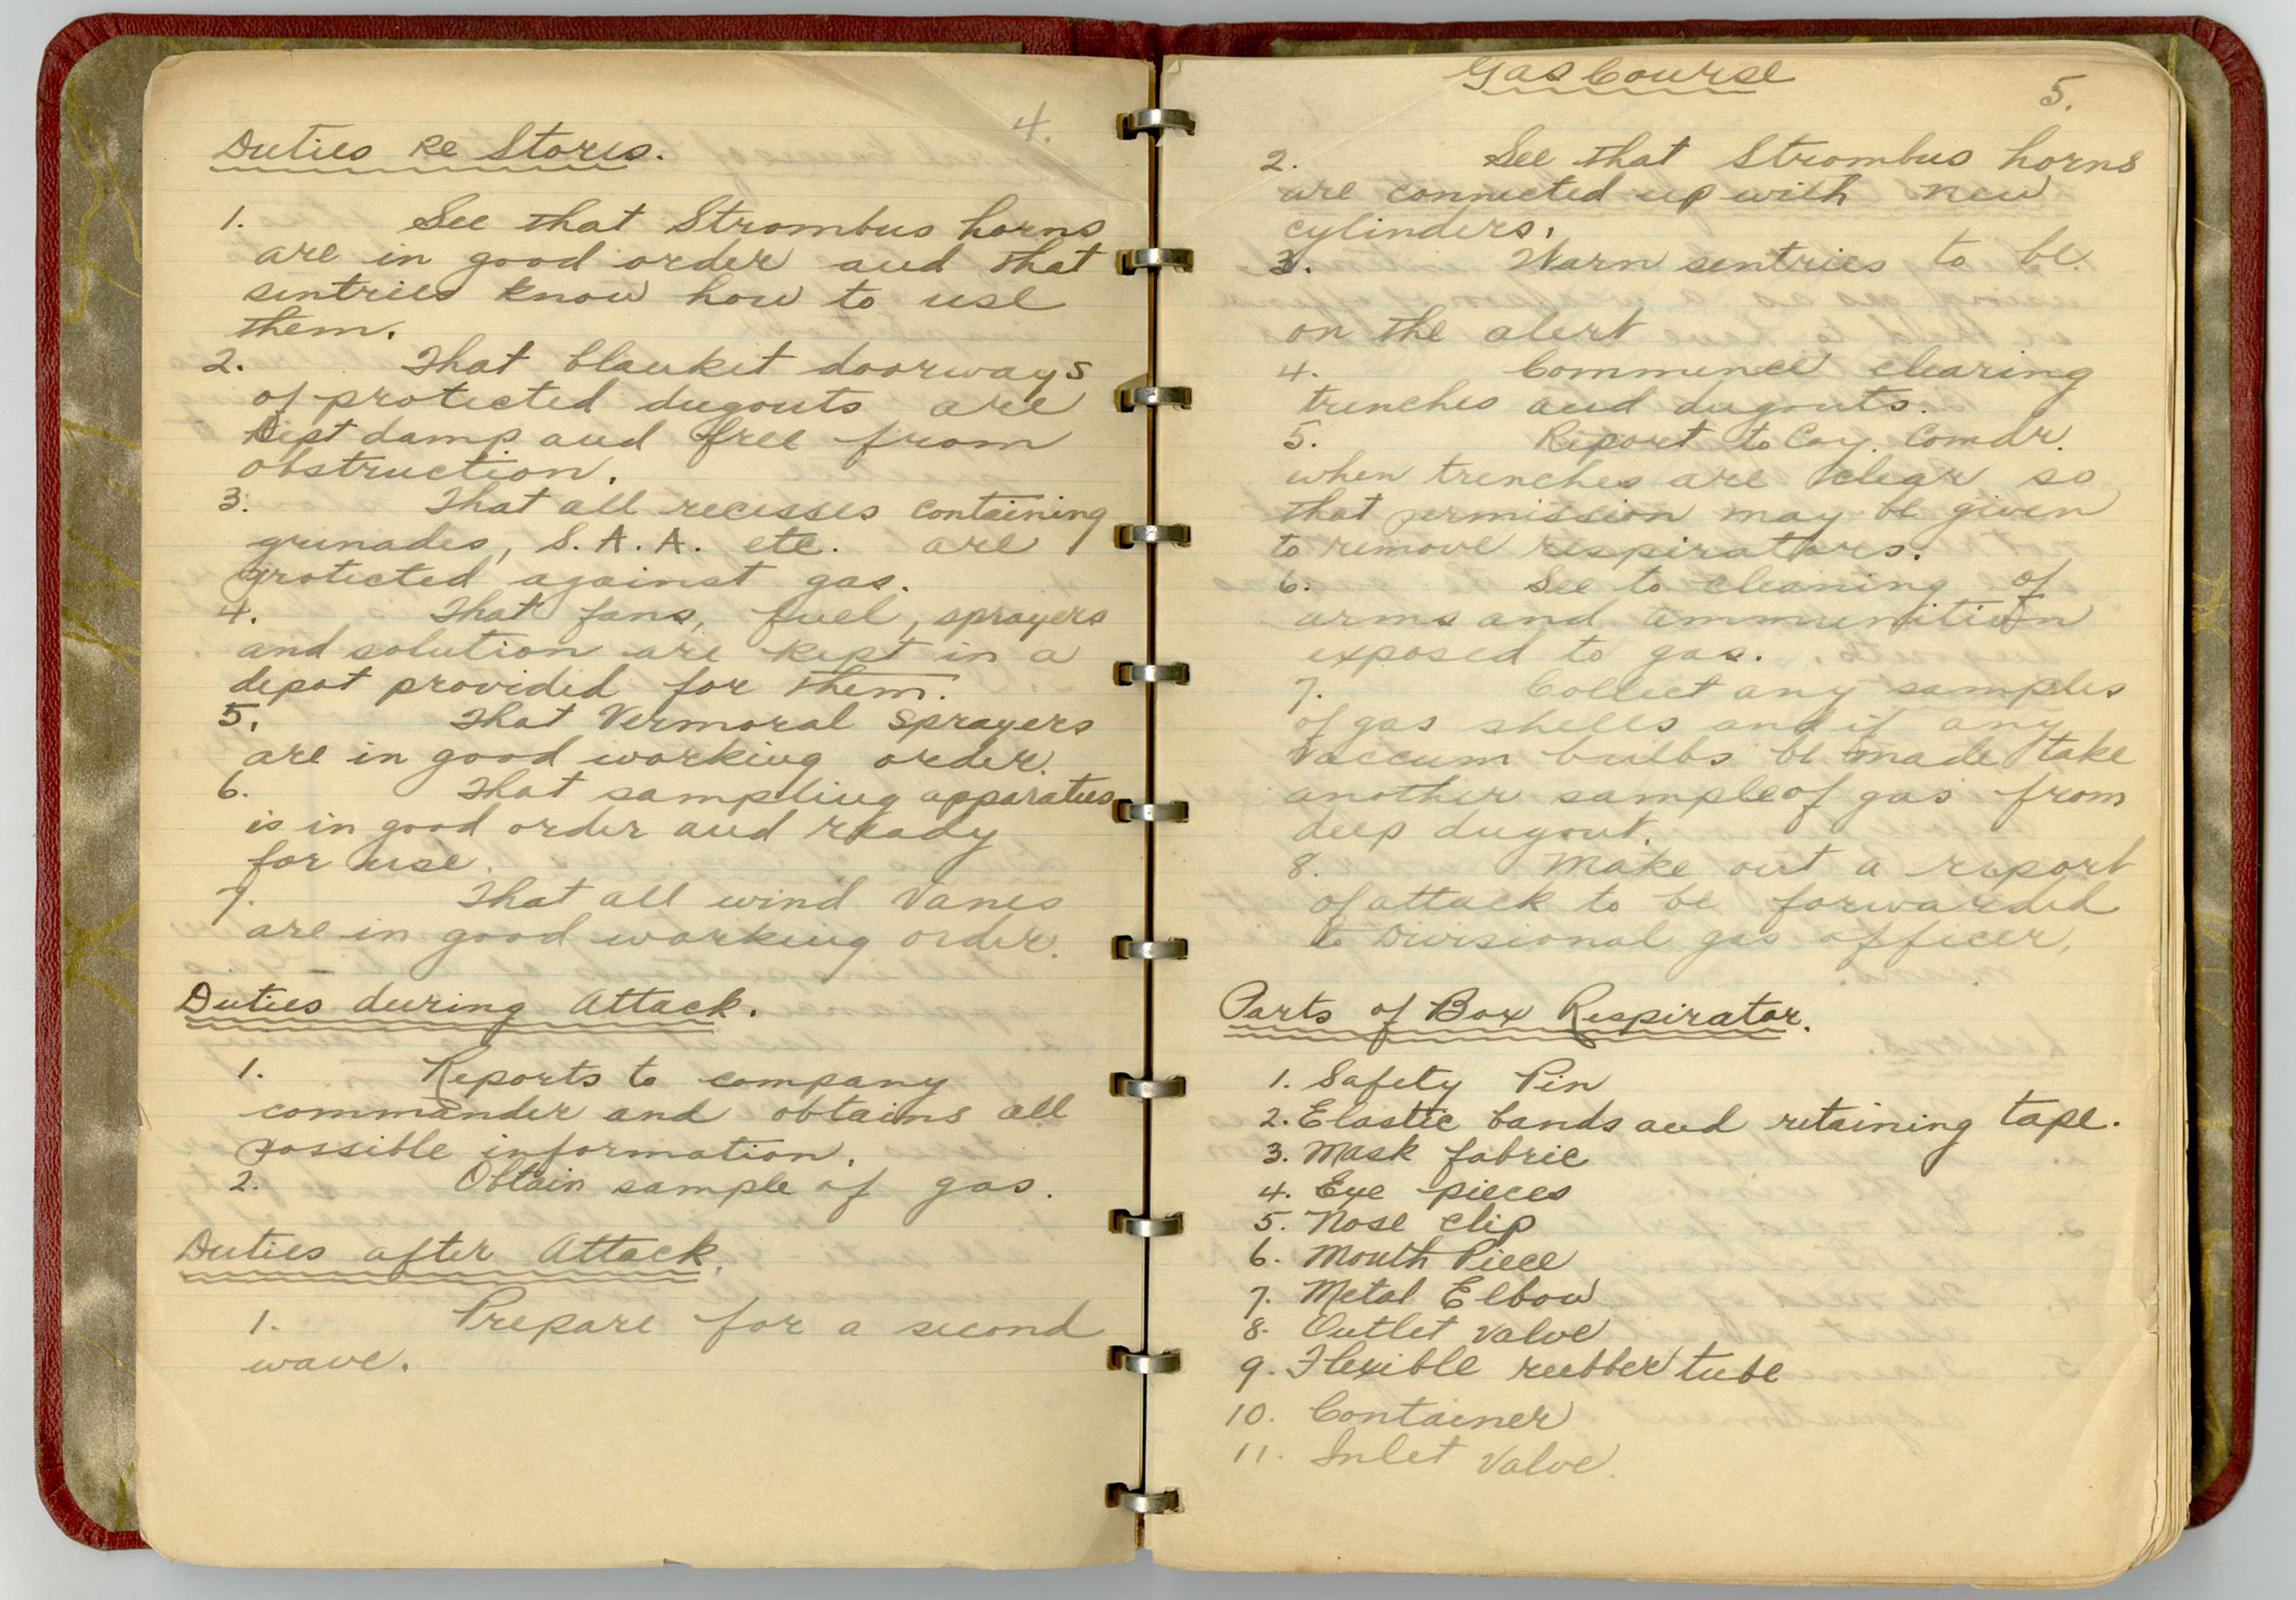 4.
Duties Re Stores.
1. See that Strombus horns
are in good order and that
sentries know how to use
them.
2. That blanket doorways
of protected dugouts are
kept damp and free from
obstruction.
3. That all recesses containing
grenades, S.A.A. etc. are
protected against gas.
4. That fans, fuel, sprayers
and solution are kept in a
depot provided for them.
5. That Vermoral Sprayers
are in good working order.
6. That sampling apparatus
is in good order and ready
for use.
7. That all wind Vanes
are in good working order.
Duties during Attack.
1. Reports to company
commander and obtains all
possible information.
2. Obtain sample of gas.
Duties after Attack.
1. Prepare for a second
wave.
Gas Course
5.
2. See that Strombus horns
are connected up with new
cylinders.
3. Warn sentries to be
on the alert
4. Commence clearing
trenches and dugouts.
5. Report to Coy. Comdr.
when trenches are clear so
that permission may be given
to remove respirators.
6. See to cleaning of
arms and ammunition
exposed to gas.
7. Collect any samples
of gas shells and if any
Vaccum bulbs be made take
another sample of gas from
deep dugout.
8. Make out a report
of attack to be forwarded
to Divisional gas officer,
Parts of Box Respirator.
1. Safety Pin
2. Elastic bands and retaining tape.
3. Mask fabric
4. Eye pieces
5. Nose clip
6. Mouth Piece
7. Metal Elbow
8. Outlet Valve
9. Flexible rubber tube
10. Container
11. Inlet Valve.